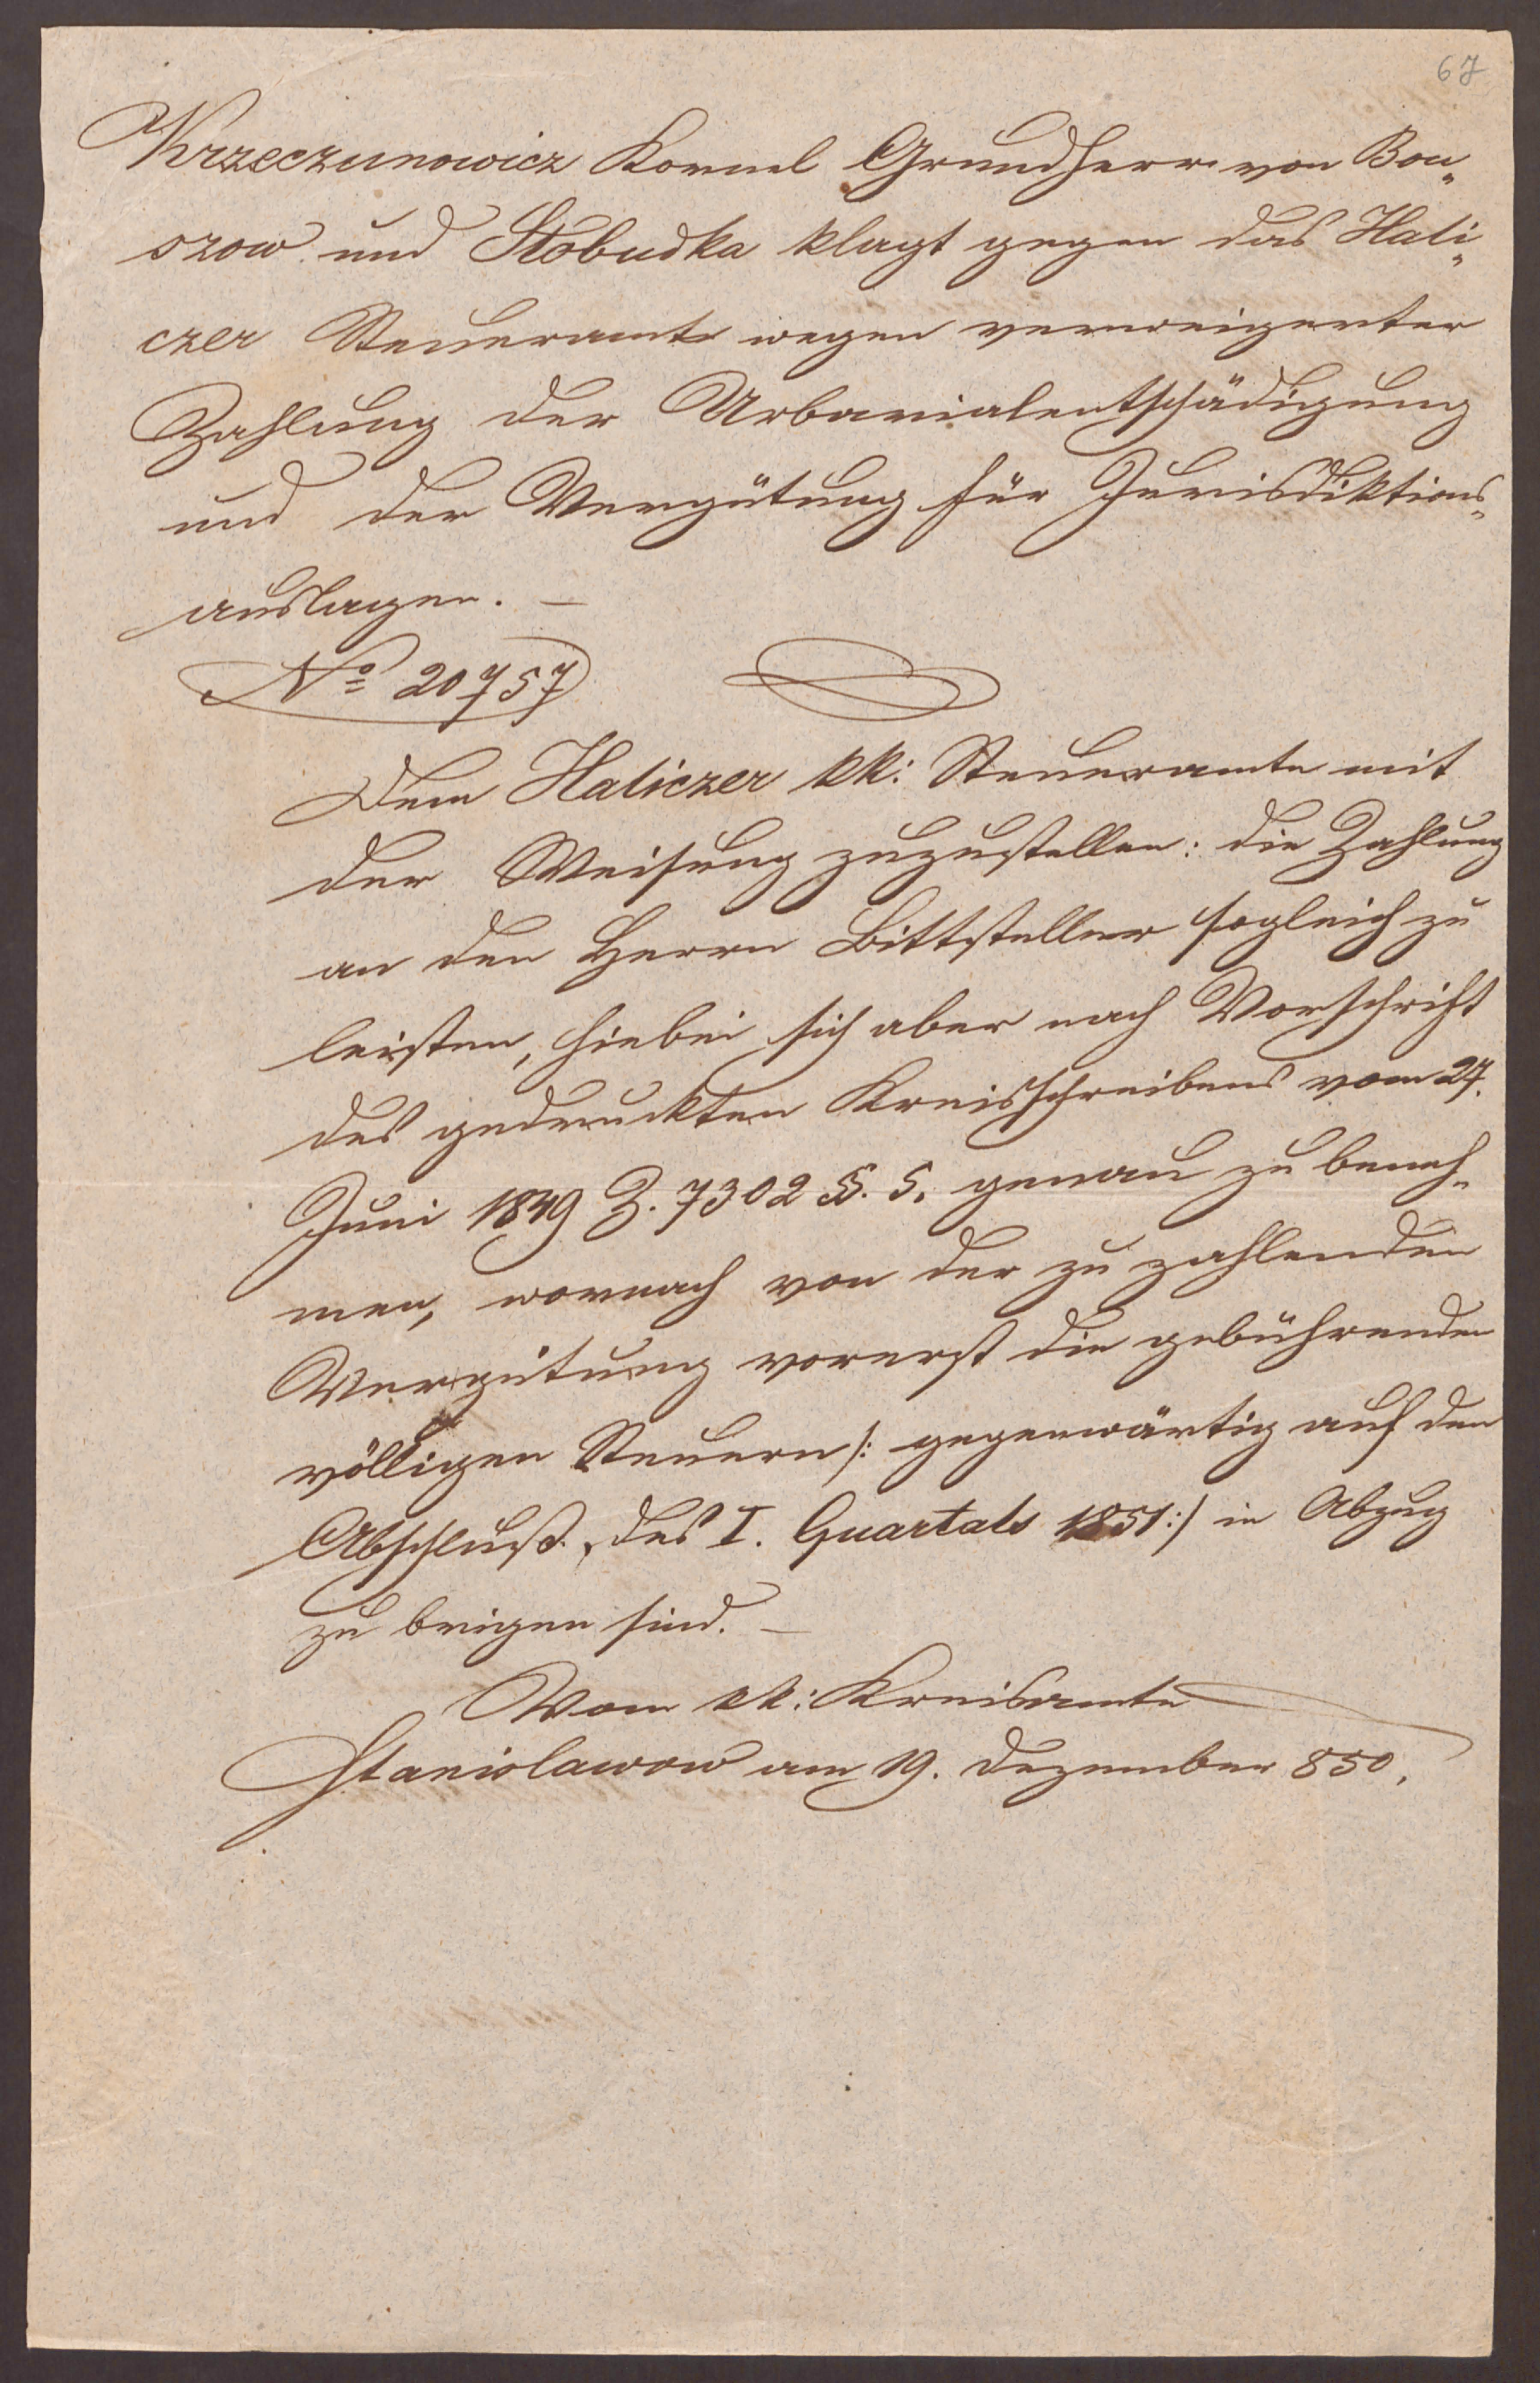 67
Krzeczunowicz Kornel Grundherr von Bou„
szow und Słobudka klagt gegen das Hali„
czer Steueramt wegen verweigerter
Zahlung der Urbarialentschädigung
und der Vergütung für Jurisdiktions„
auslagen. —
No 20757
Dem Haliczer kk: Steueramte mit
der Weisung zuzustellen: die Zahlung
an den Herrn Bittsteller sogleich zu
leisten, hiebei sich aber nach Vorschrift
des gedruckten Kreisschreibens vom 27.
Juni 1849 Z. 7302 §. 5. genau zu beneh„
men, wornach von der zu zahlenden
Vergütung vorerst die gebührenden
völligen Steuern /: gegenwärtig auf den
Abschluß des I. Quartals 1851 :/ in Abzug
zu bringen sind. —
Vom kk: Kreisamte
Stanislawow am 19. Dezember 850.